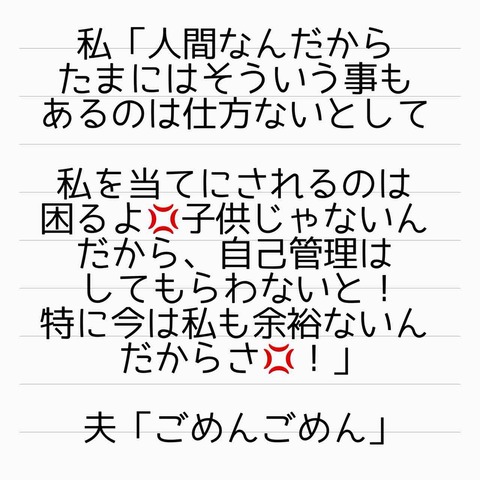 私「人間なんだから
たまにはそういう事も
あるのは仕方ないとして
私を当てにされるのは
困るよ💢子供じゃないん
だから、自己管理は
してもらわないと！
特に今は私も余裕ないん
だからさ💢！」
夫「ごめんごめん」